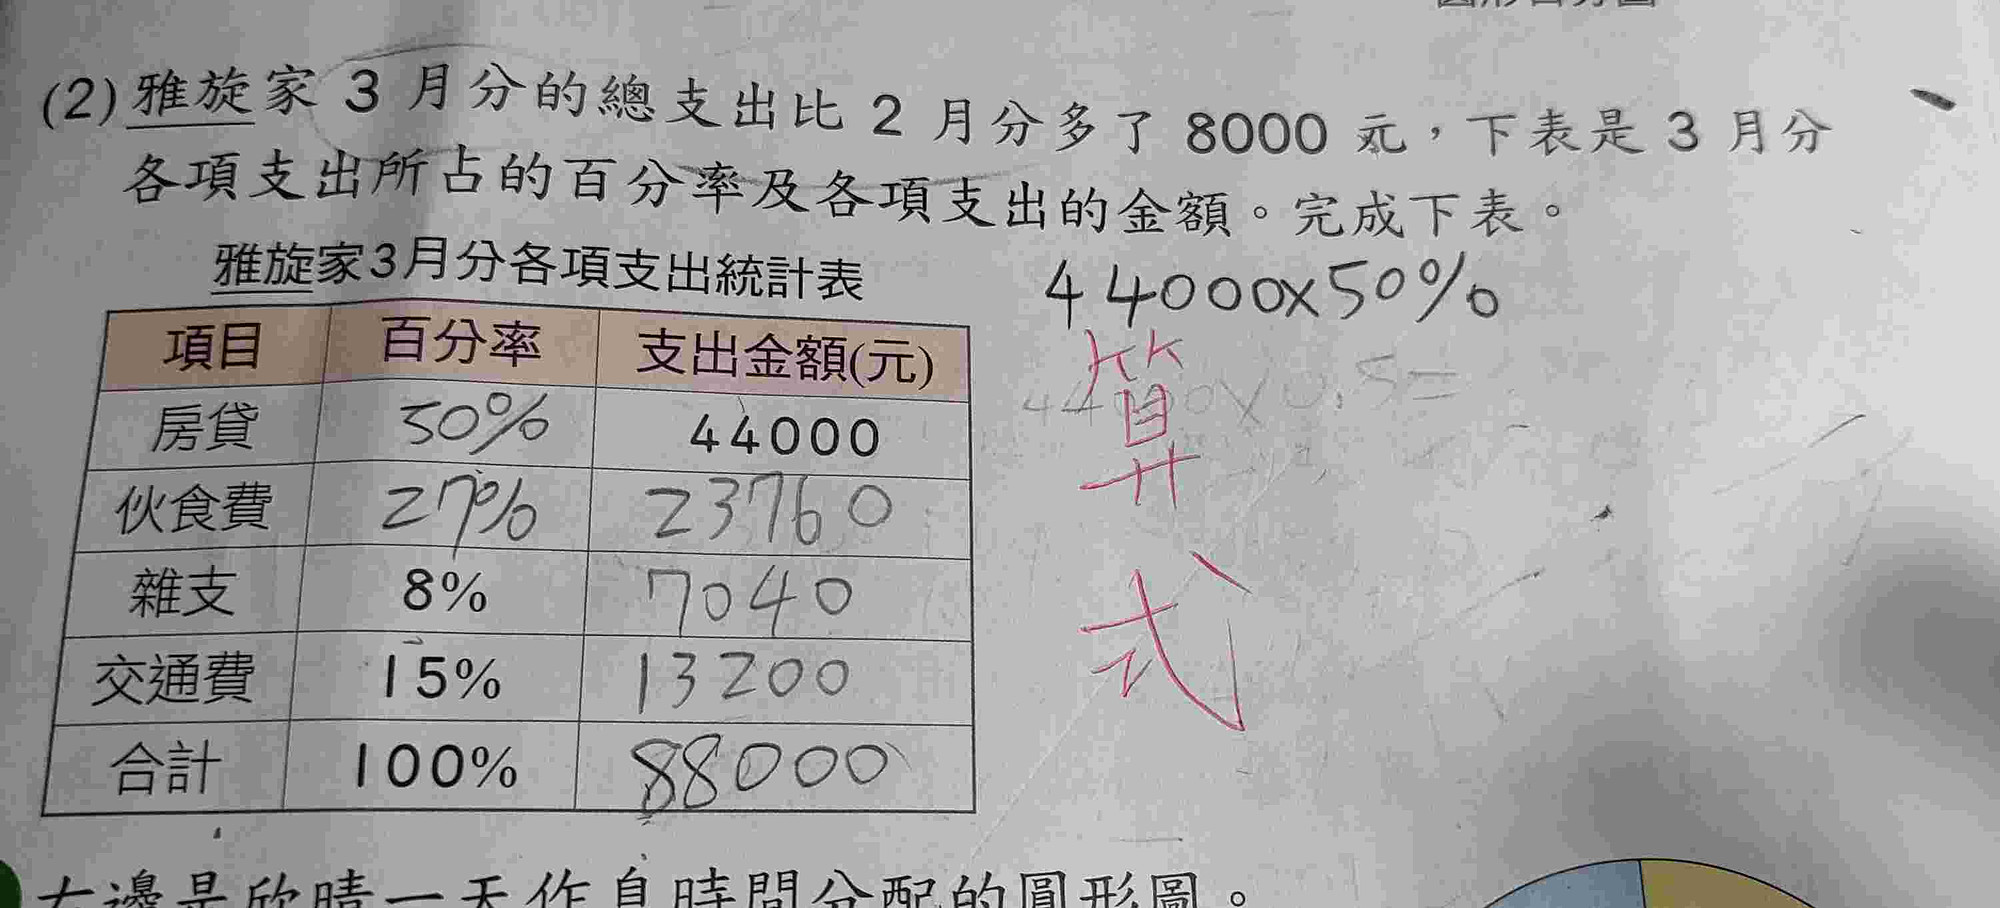 (2)雅旋家 3 月分的總支出比 2 月分多了 8000 元，下表是 3 月分
各項支出所占的百分率及各項支出的金額。完成下表。
雅旋家3月分各項支出統計表
44000x50%
項目 百分率 支出金額(元)
44000x0.5=
算式
房貸 50% 44000
伙食費 27% 23760
雜支 8% 7040
交通費 15% 13200
合計 100% 88000
右邊是欣晴一天作息時間分配的圓形圖。